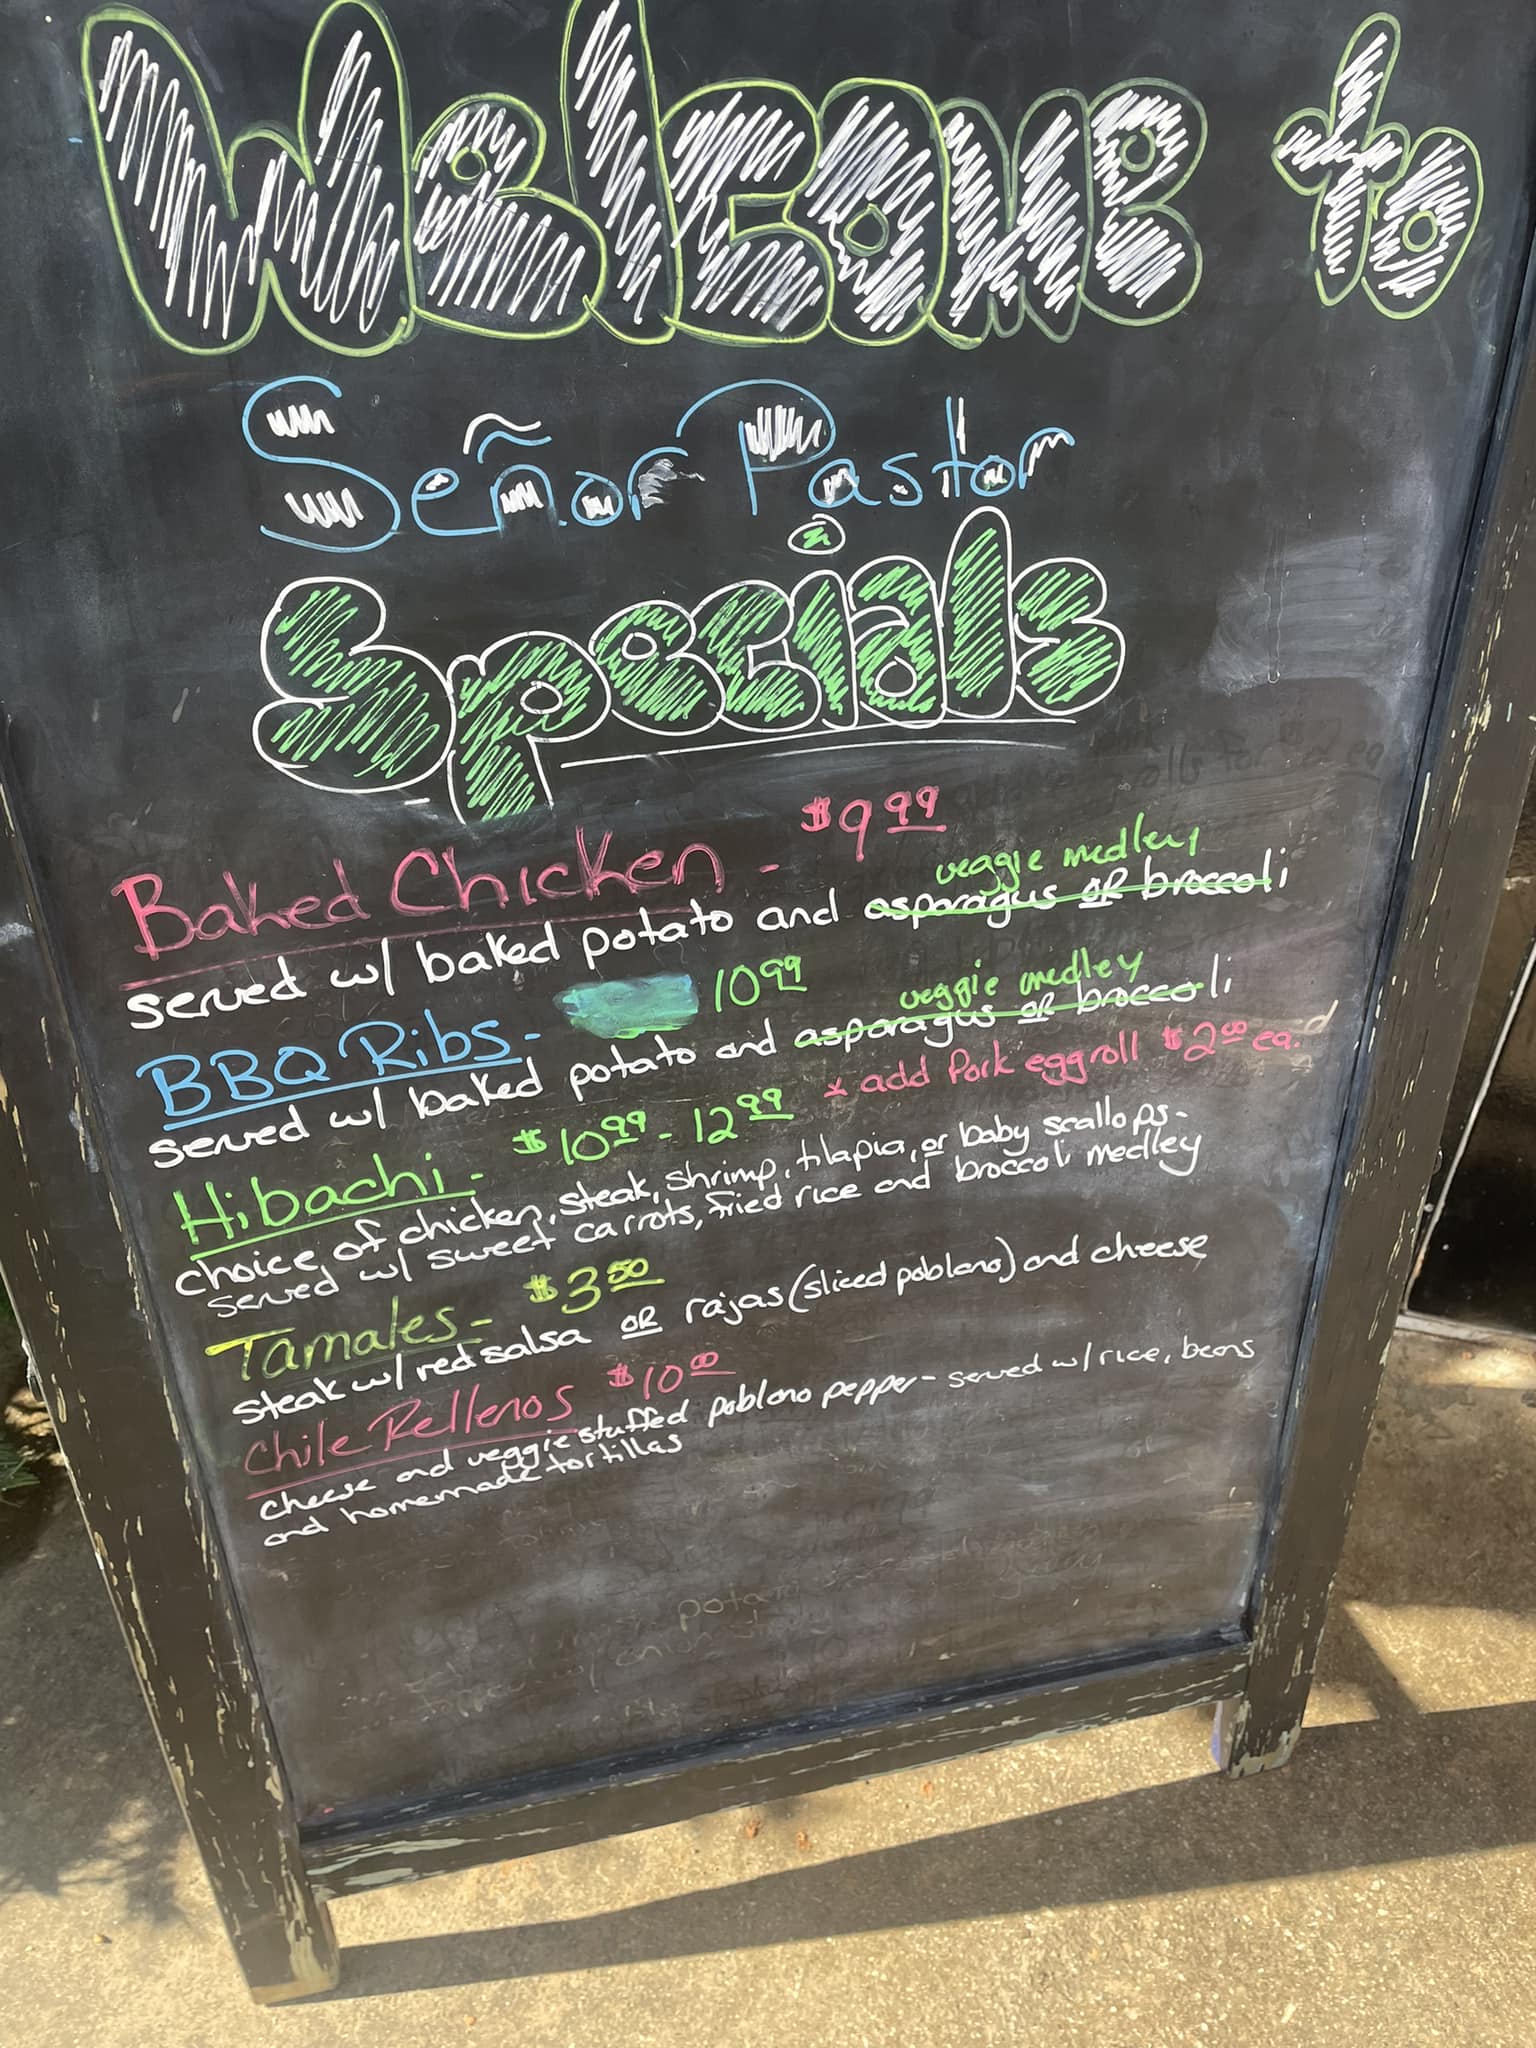 Welcome to
Señor Pastor
Specials
Baked Chicken - $9.99
veggie medley
served w/ baked potato and asparagus OR broccoli
BBQ Ribs - 10.99
veggie medley
served w/ baked potato and asparagus or broccoli
* add Pork eggroll $2.00 ea.
Hibachi - $10.99 - 12.99
choice of chicken, steak, shrimp, tilapia, or baby scallops -
served w/ sweet carrots, fried rice and broccoli medley
Tamales - $3.50
steak w/ red salsa OR rajas (sliced poblano) and cheese
Chile Rellenos $10.00
cheese and veggie stuffed poblano pepper - served w/ rice, beans
and homemade tortillas